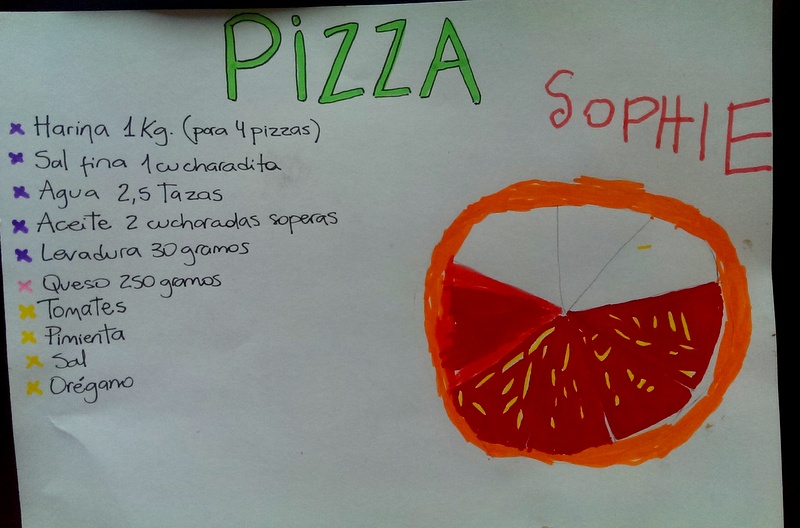 PiZZA
SOPHIE
Harina 1Kg. (para 4 pizzas)
Sal fina 1 cucharadita
Agua 2,5 Tazas
Aceite 2 cucharadas soperas
Levadura 30 gramos
Queso 250 gramos
Tomates
Pimienta
Sal
Orégano